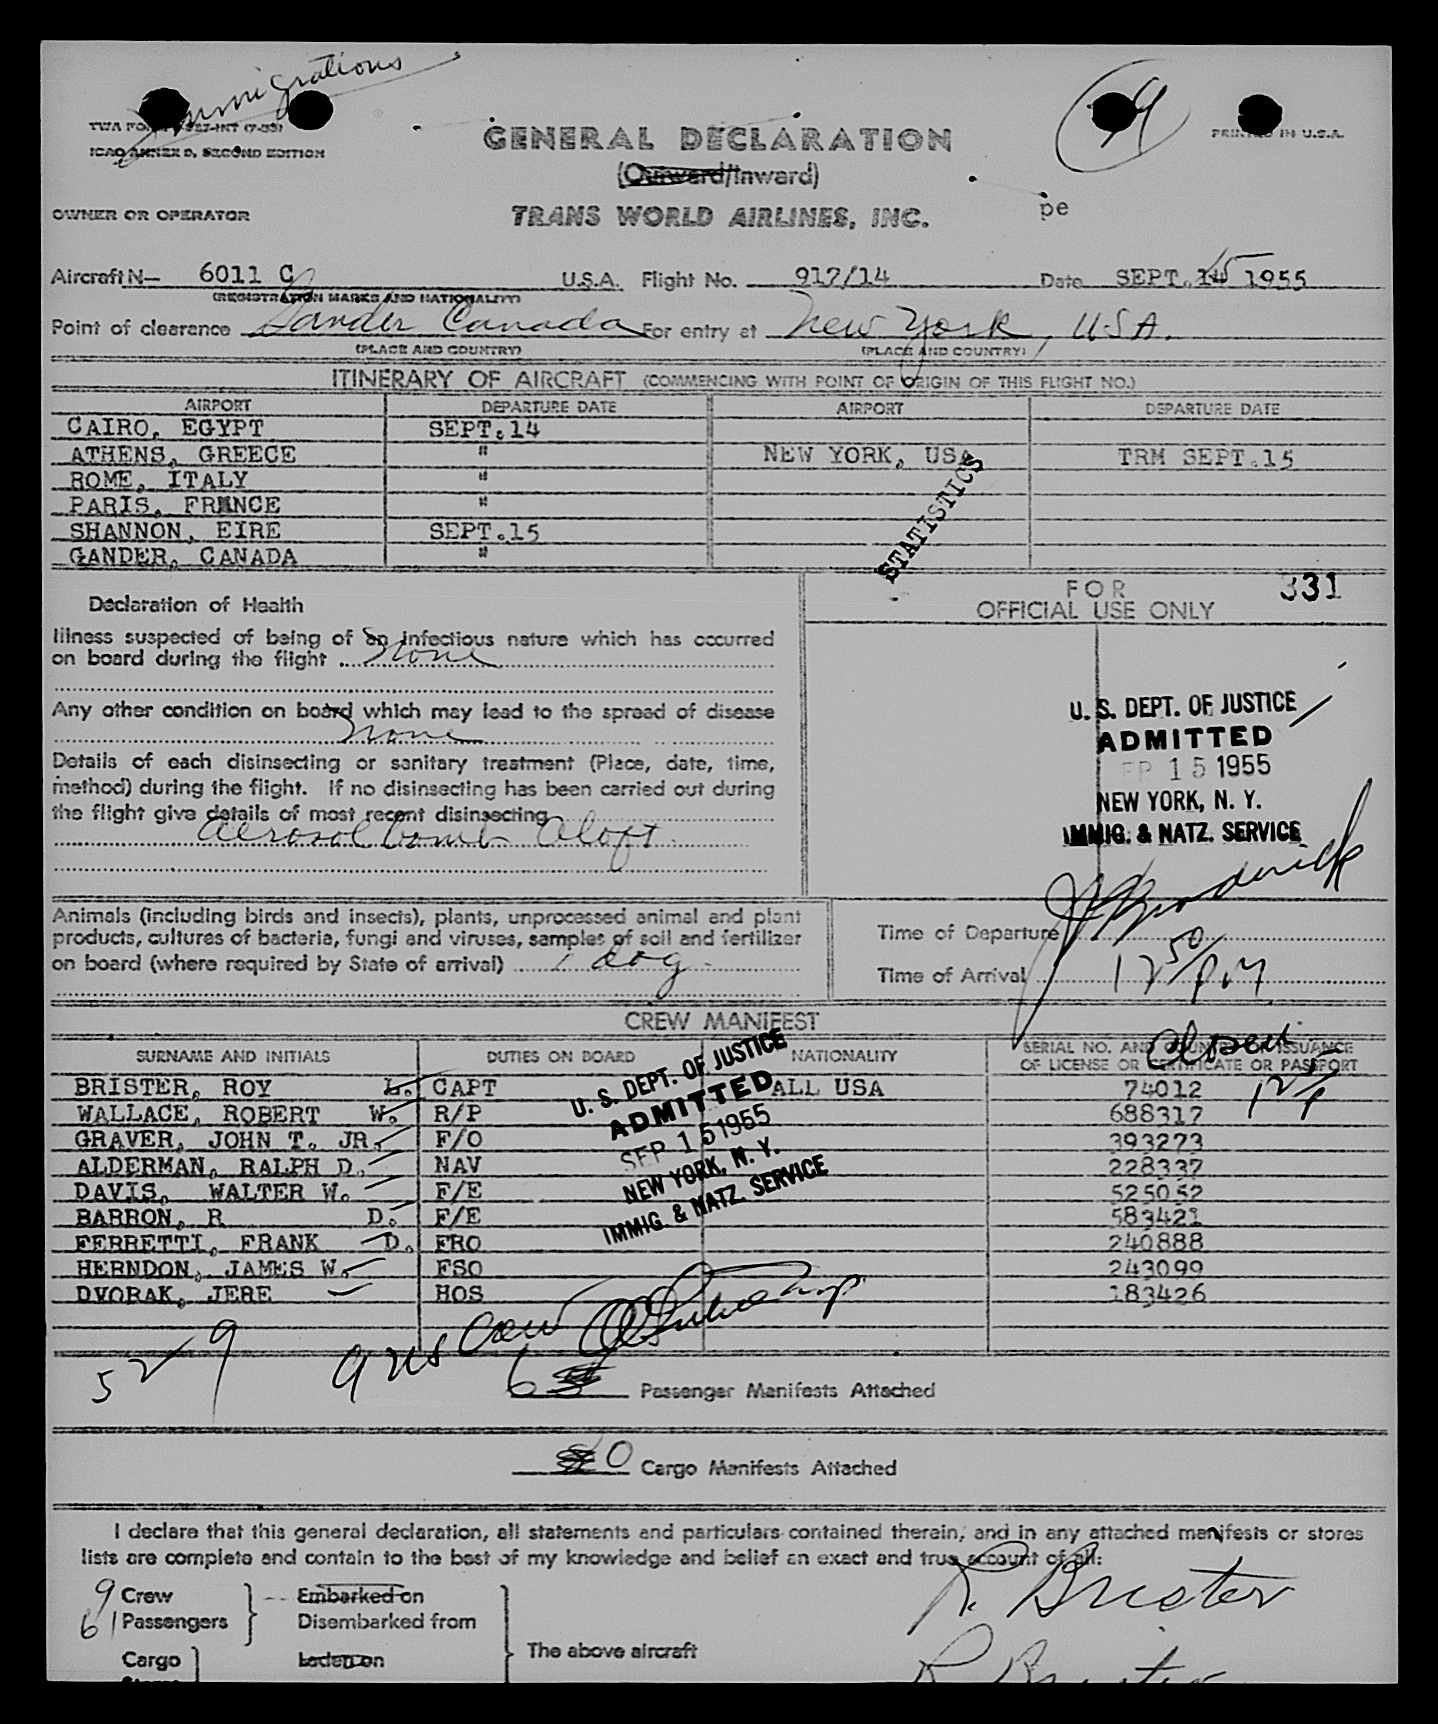 Immigrations
9
PRINTED IN U.S.A.
ICAO ANNEX 9, SECOND EDITION
GENERAL DECLARATION
(Outward/Inward)
OWNER OR OPERATOR TRANS WORLD AIRLINES, INC. pe
Aircraft N— 6011 C U.S.A. Flight No. 917/14 Date SEPT. 14 15 1955
(REGISTRATION MARKS AND NATIONALITY)
Point of clearance Gander Canada For entry at New York, USA.
(PLACE AND COUNTRY) (PLACE AND COUNTRY)
ITINERARY OF AIRCRAFT (COMMENCING WITH POINT OF ORIGIN OF THIS FLIGHT NO.)
AIRPORT DEPARTURE DATE AIRPORT DEPARTURE DATE
CAIRO, EGYPT SEPT.14
ATHENS, GREECE " NEW YORK, USA TRM SEPT.15
ROME, ITALY "
PARIS, FRANCE "
SHANNON, EIRE SEPT.15
GANDER, CANADA "
STATISTICS
Declaration of Health
FOR 331
OFFICIAL USE ONLY
Illness suspected of being of an infectious nature which has occurred
on board during the flight none
Any other condition on board which may lead to the spread of disease
none
Details of each disinsecting or sanitary treatment (Place, date, time,
method) during the flight. If no disinsecting has been carried out during
the flight give details of most recent disinsecting
aerosol bomb aloft.
U. S. DEPT. OF JUSTICE
ADMITTED
SEP 15 1955
NEW YORK, N. Y.
IMMIG. & NATZ. SERVICE
Animals (including birds and insects), plants, unprocessed animal and plant
products, cultures of bacteria, fungi and viruses, samples of soil and fertilizer
on board (where required by State of arrival) 1 dog.
Time of Departure
Time of Arrival 12 50/PM
CREW MANIFEST
SURNAME AND INITIALS DUTIES ON BOARD NATIONALITY SERIAL NO. AND COUNTRY OF ISSUANCE
OF LICENSE OR CERTIFICATE OR PASSPORT
BRISTER, ROY L. CAPT ALL USA 74012
WALLACE, ROBERT W. R/P 688317
GRAVER, JOHN T. JR. F/O 393273
ALDERMAN, RALPH D. NAV 228337
DAVIS, WALTER W. F/E 525052
BARRON, R D. F/E 583421
FERRETTI, FRANK D. FRO 240888
HERNDON, JAMES W. FSO 243099
DVORAK, JERE HOS 183426
U. S. DEPT. OF JUSTICE
ADMITTED
SEP 15 1955
NEW YORK, N. Y.
IMMIG. & NATZ. SERVICE
52 9
9 US Crew
6 Passenger Manifests Attached
0 Cargo Manifests Attached
I declare that this general declaration, all statements and particulars contained therein, and in any attached manifests or stores
lists are complete and contain to the best of my knowledge and belief an exact and true account of all:
R. Brister
9 Crew Embarked on
61 Passengers Disembarked from
The above aircraft
Cargo Laden on
R. Brister